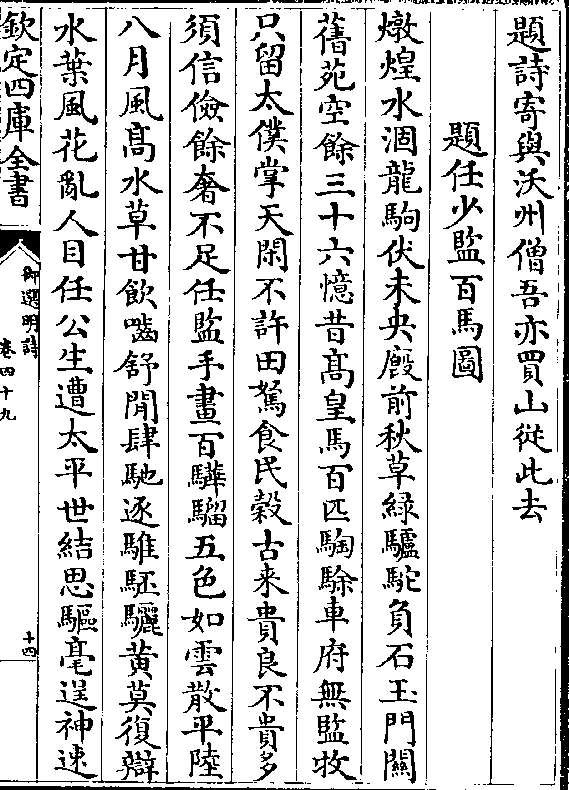 題詩寄與沃州僧吾亦買山從此去
題任少監百馬圖
燉煌水涸龍駒伏未央廐前秋草綠驢駝負石玉門關
舊苑空餘三十六憶昔髙皇馬百匹騊駼車府無監牧
只留太僕掌天閑不許田駑食民穀古来貴良不貴多
須信儉餘奢不足任監手畫百驊騮五色如雲散平陸
八月風髙水草甘飲齧舒閒肆馳逐騅駓驪黄莫復辯
水葉風花亂人目任公生遭太平世結思驅毫逞神速
欽定四庫全書
御選明詩
卷四十九
十四